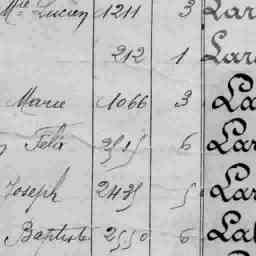 Mie Lucien 1211 3 Lar
212 1 Lar
Marie 1066 3 La
Felix 2515 6 Lar
Joseph 2435 5 Lar
Baptiste 2550 6 Lal